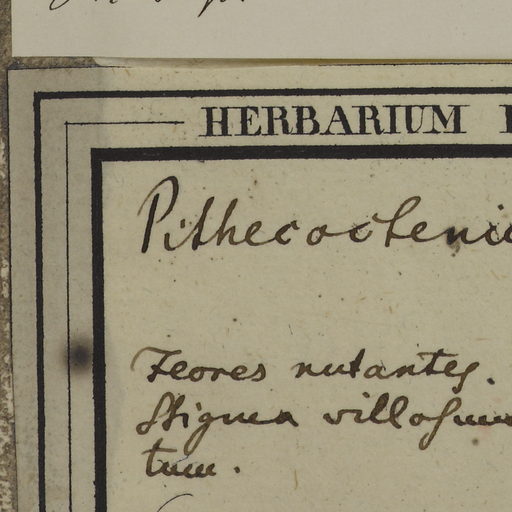 HERBARIUM
Pithecocteniu
Feores nutantes.
Stigma villosum
tum.